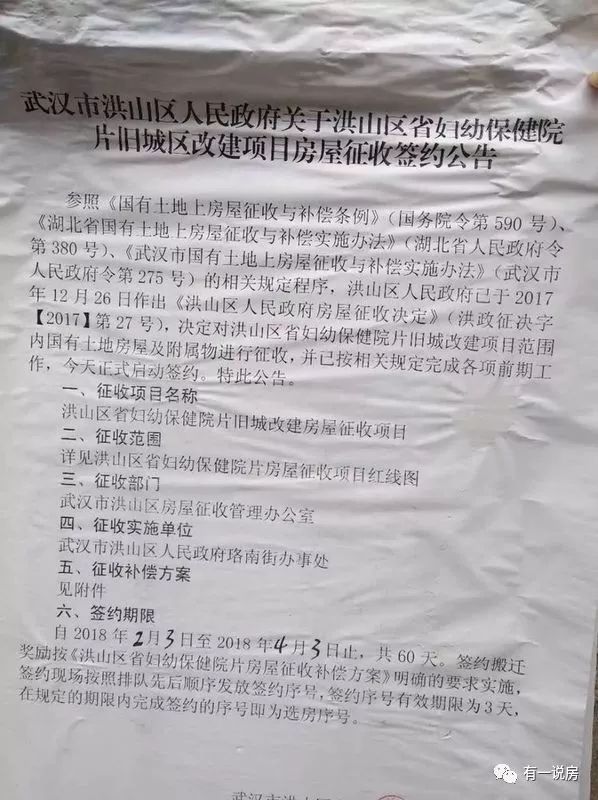 武汉市洪山区人民政府关于洪山区省妇幼保健院
片旧城区改建项目房屋征收签约公告
参照《国有土地上房屋征收与补偿条例》(国务院令第 590 号)、
《湖北省国有土地上房屋征收与补偿实施办法》(湖北省人民政府令
第 380 号)、《武汉市国有土地上房屋征收与补偿实施办法》(武汉市
人民政府令第 275 号)的相关规定程序，洪山区人民政府已于 2017
年 12 月 26 日作出《洪山区人民政府房屋征收决定》(洪政征决字
【2017】第 27 号)，决定对洪山区省妇幼保健院片旧城改建项目范围
内国有土地房屋及附属物进行征收，并已按相关规定完成各项前期工
作，今天正式启动签约。特此公告。
一、征收项目名称
洪山区省妇幼保健院片旧城改建房屋征收项目
二、征收范围
详见洪山区省妇幼保健院片房屋征收项目红线图
三、征收部门
武汉市洪山区房屋征收管理办公室
四、征收实施单位
武汉市洪山区人民政府珞南街办事处
五、征收补偿方案
见附件
六、签约期限
自 2018 年 2 月 3 日至 2018 年 4 月 3 日止，共 60 天。签约搬迁
奖励按《洪山区省妇幼保健院片房屋征收补偿方案》明确的要求实施，
签约现场按照排队先后顺序发放签约序号，签约序号有效期限为 3 天，
在规定的期限内完成签约的序号即为选房序号。
武汉市洪山区
有一说房